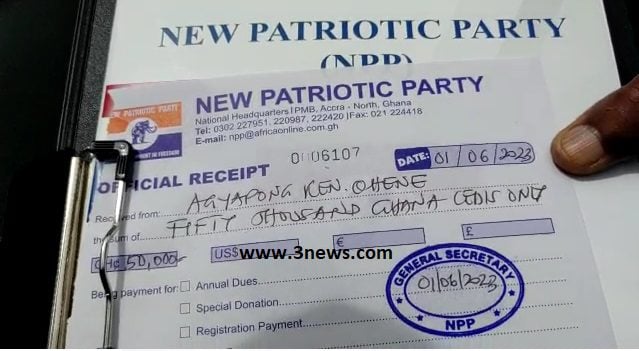 NEW PATRIOTIC PARTY
(NPP)
NEW PATRIOTIC PARTY
NEW PATRIOTIC PARTY
National Headquarters | PMB, Accra - North, Ghana
Tel: 0302 227951, 220987, 222420 | Fax: 021 224418
E-mail: npp@africaonline.com.gh
DEVELOPMENT IN FREEDOM
OFFICIAL RECEIPT
0006107
DATE: 01/06/2023
Received from: AGYAPONG KEN. OHENE
the sum of FIFTY THOUSAND GHANA CEDIS ONLY
GH¢ 50,000 US$ € £
www.3news.com
Being payment for: Annual Dues
Special Donation
Registration Payment
GENERAL SECRETARY
01/06/2023
NPP